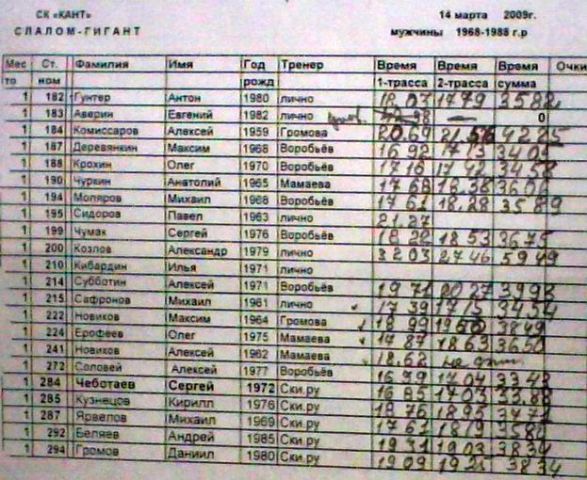 СК «КАНТ» 14 марта 2009г.
СЛАЛОМ-ГИГАНТ мужчины 1968-1988 г.р
Мес Ст. Фамилия Имя Год Тренер Время Время Время Очки
то ном рожд 1-трасса 2-трасса сумма
1 182 Гунтер Антон 1980 лично 18.03 17.79 35.82
1 183 Аверин Евгений 1982 лично — 0
1 184 Комиссаров Алексей 1959 Громова 20.69 21.56 42.25
1 187 Деревянкин Максим 1968 Воробьёв 16 92 17 13 34.05
1 188 Крохин Олег 1970 Воробьёв 17 16 17 42 34.58
1 190 Чуркин Анатолий 1965 Мамаева 17 68 18.38 36.06
1 194 Моляров Михаил 1968 Воробьёв 17 61 18.28 35 89
1 195 Сидоров Павел 1963 лично 21.27
1 199 Чумак Сергей 1976 Воробьёв 18 22 18 53 36.75
1 200 Козлов Александр 1979 лично 32 03 27 46 59 49
1 210 Кибардин Илья 1971 лично
1 214 Субботин Алексей 1971 Воробьёв 19 71 20 27 39 98
1 215 Сафронов Михаил 1961 лично 17 39 17 15 34 54
1 222 Новиков Максим 1964 Громова 18 99 19 50 38 49
1 224 Ерофеев Олег 1975 Мамаева 17 87 18 63 36 50
1 241 Новиков Алексей 1962 Мамаева 18.62 не фин.
1 272 Соловей Алексей 1977 Воробьёв 17 04
1 284 Чеботаев Сергей 1972 Ски.ру 16 85 17 03 33.88
1 285 Кузнецов Кирилл 1976 Ски.ру 18 76 18 95 37 71
1 287 Ярвелов Михаил 1969 Ски.ру 18 19
1 292 Беляев Андрей 1985 Ски.ру 19 31 19 03 38 34
1 294 Громов Даниил 1980 Ски.ру 19 09 19 25 38 34